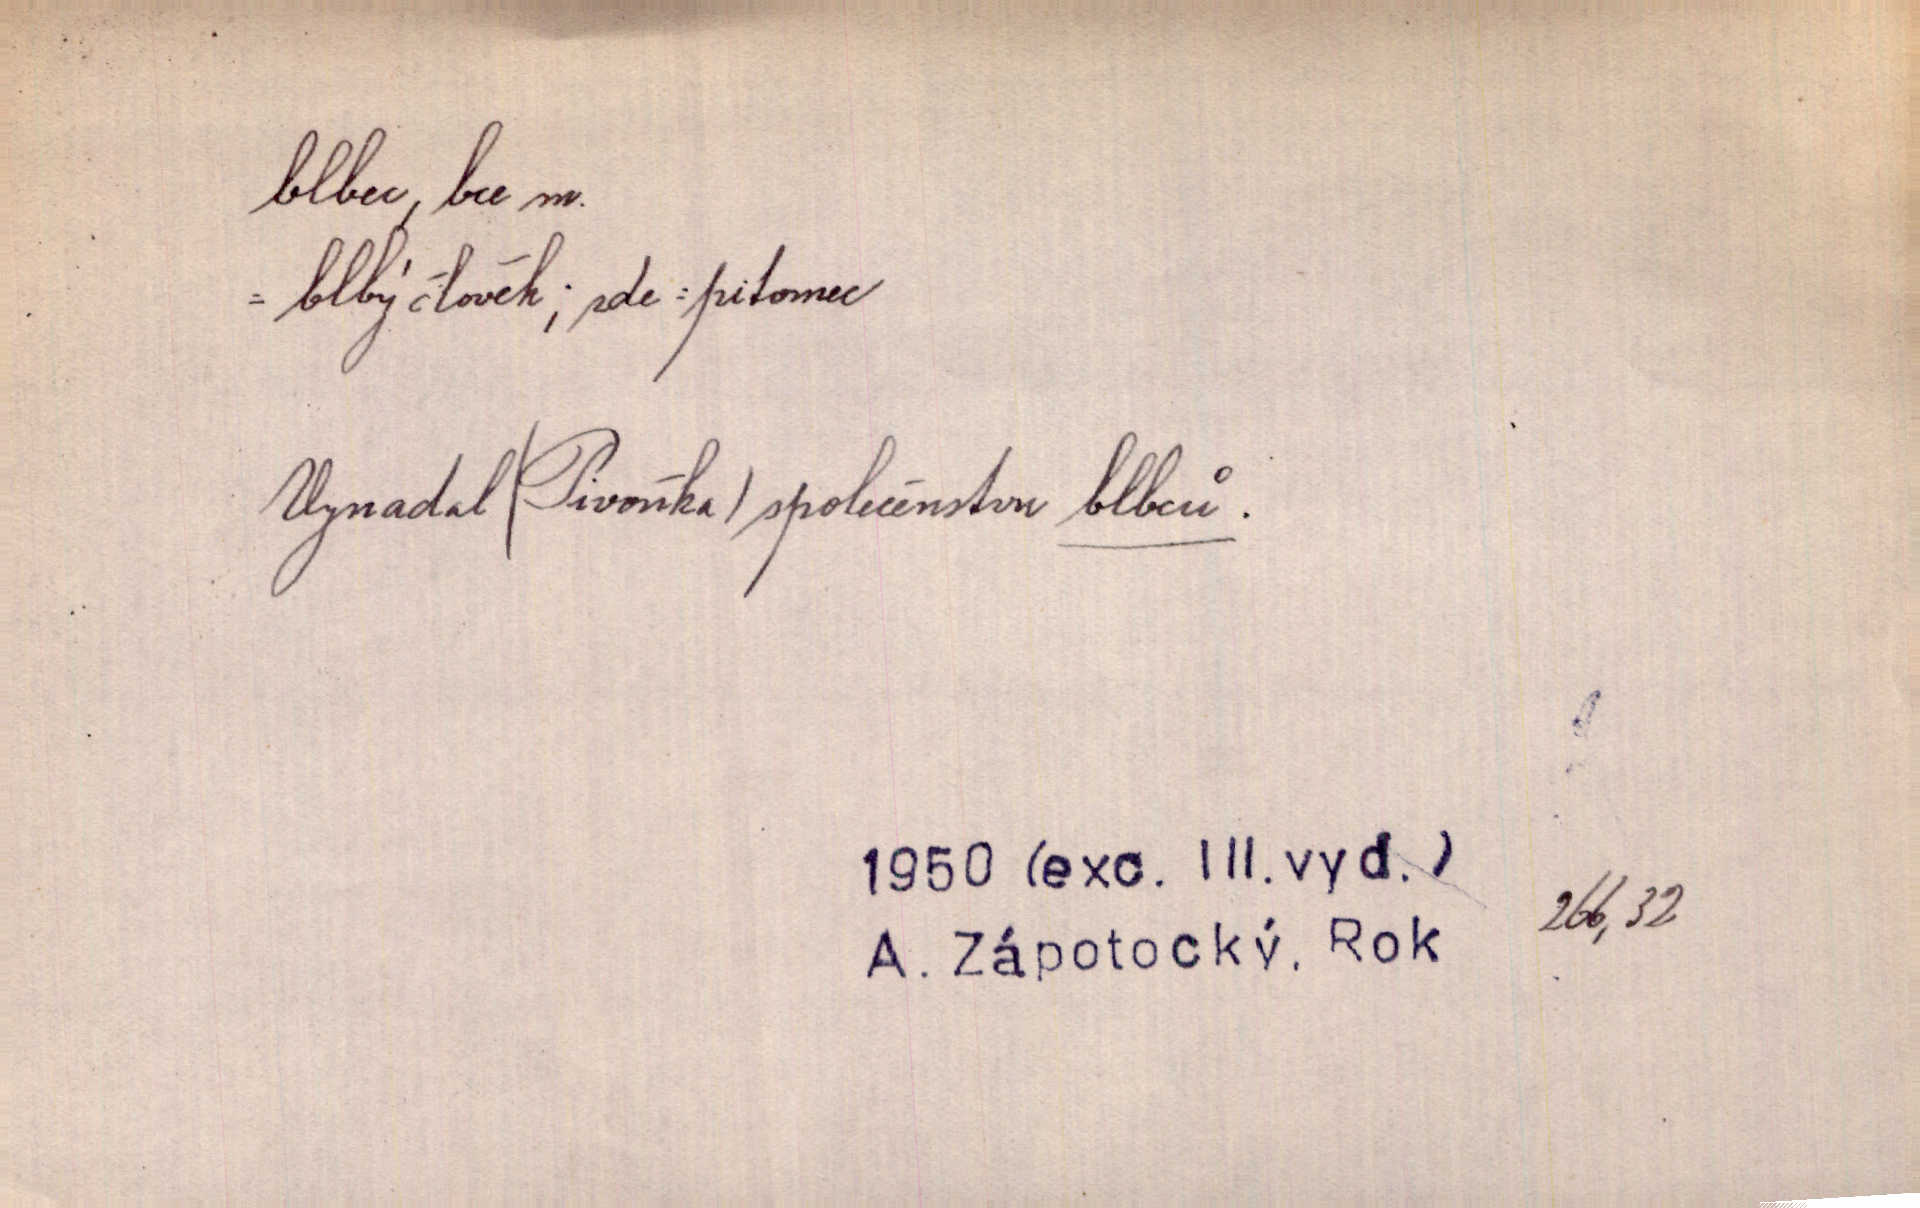 blbec, bce m.
= blbý člověk; zde = pitomec
Vynadal (Pivoňka) společenstvu blbců.
1950 (exc. III. vyd.)
A. Zápotocký, Rok
266, 32